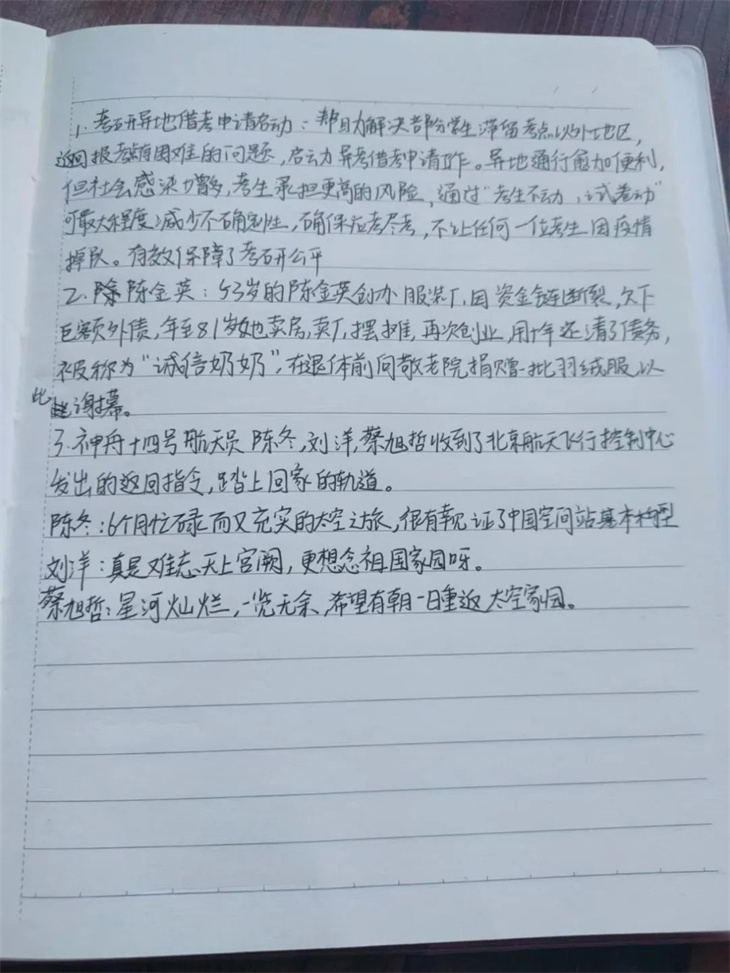 1. 考研异地借考申请启动：帮助解决部分学生滞留考点以外地区，
返回报考点有困难的问题，启动异考借考申请工作。异地通行愈加便利，
但社会感染增多，考生承担更高的风险，通过"考生不动，试卷动"
可最大程度减少不确定性，确保应考尽考，不让任何一位考生因疫情
掉队。有效保障了考研公平
2. 陈金英：53岁的陈金英创办服装厂，因资金链断裂，欠下
巨额外债，年至81岁她卖房，卖厂，摆摊，再次创业，用十年还清了债务，
被称为"诚信奶奶"，在退休前向敬老院捐赠一批羽绒服以
此谢幕。
3. 神舟十四号航天员陈冬，刘洋，蔡旭哲收到了北京航天飞行控制中心
发出的返回指令，踏上回家的轨道。
陈冬：6个月忙碌而又充实的太空之旅，很有幸见证了中国空间站基本构型
刘洋：真是难忘天上宫阙，更想念祖国家园呀。
蔡旭哲：星河灿烂，一览无余，希望有朝一日重返太空家园。